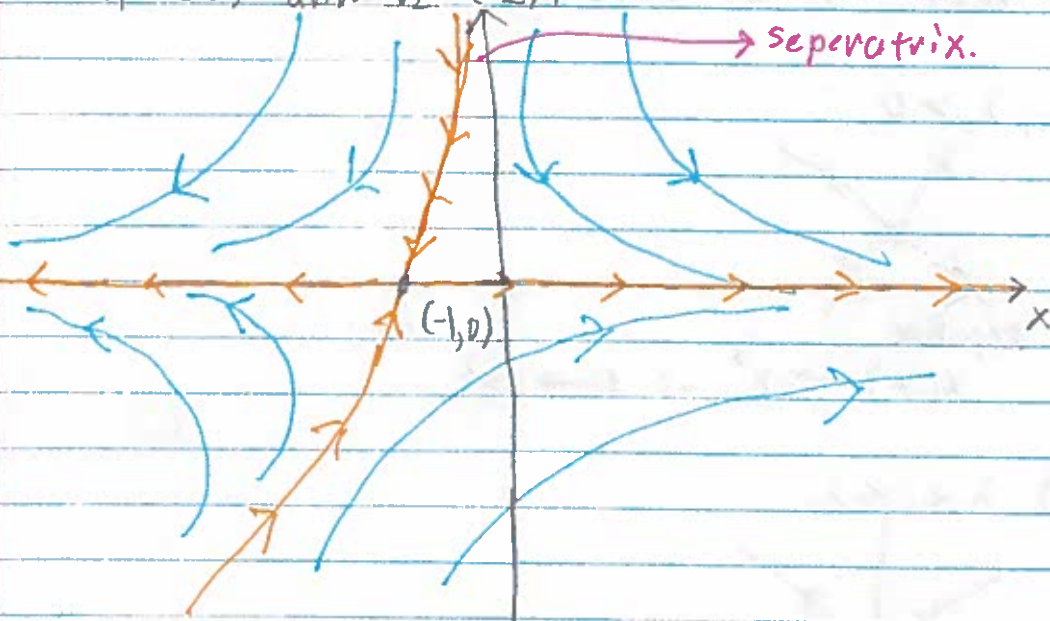 seperatrix.
(-1,0)
x